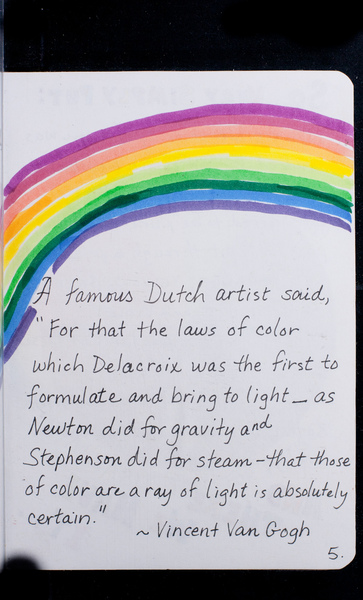 A famous Dutch artist said,
"For that the laws of color
which Delacroix was the first to
formulate and bring to light — as
Newton did for gravity and
Stephenson did for steam - that those
of color are a ray of light is absolutely
certain."
~ Vincent Van Gogh
5.